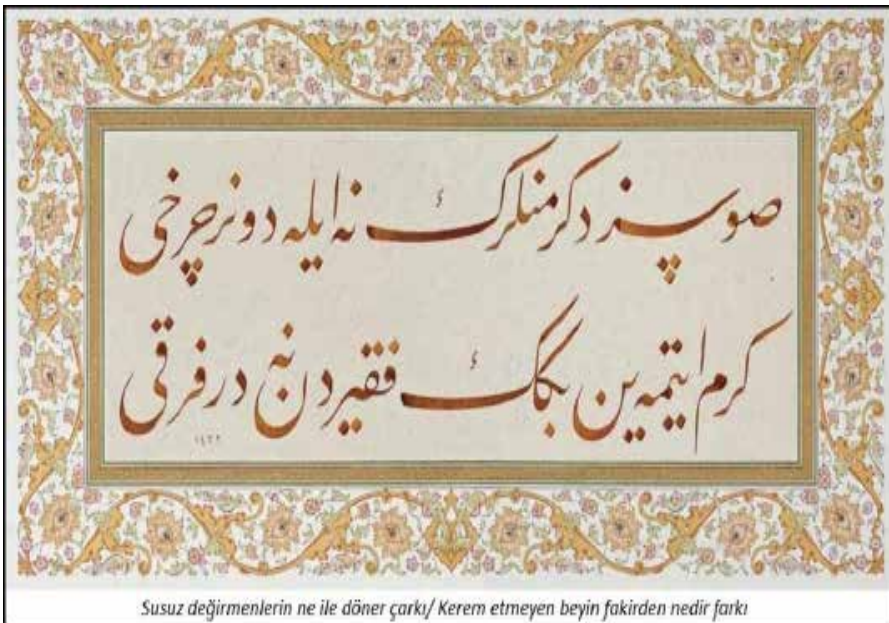 صوسز دكرمنلرك نه ايله دونر چرخی
كرم ايتميه ين بكك فقيردن نه در فرقی
١٤٣٢
Susuz değirmenlerin ne ile döner çarkı/ Kerem etmeyen beyin fakirden nedir farkı